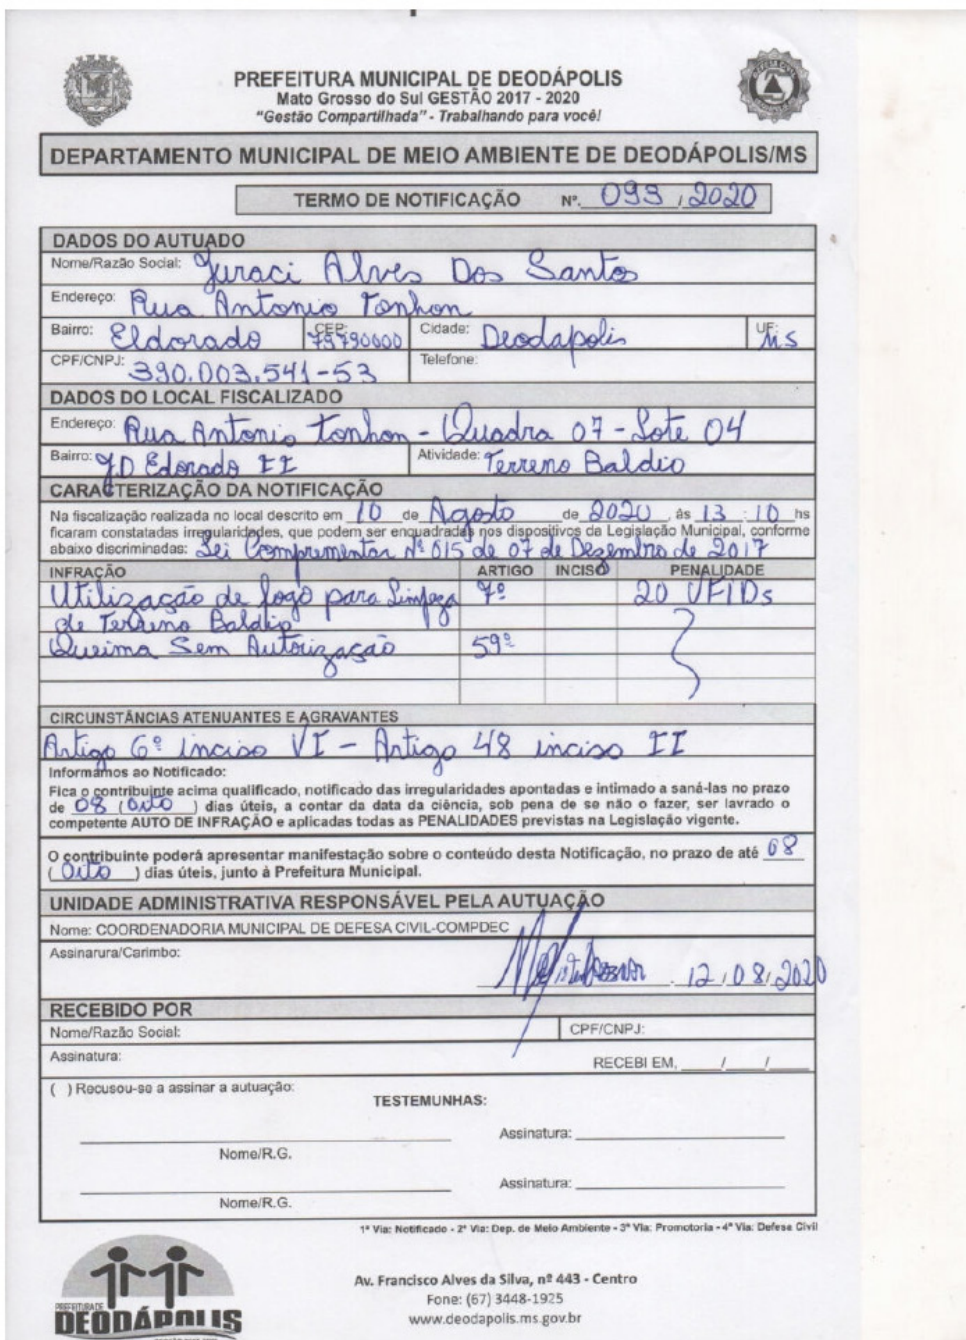 PREFEITURA MUNICIPAL DE DEODÁPOLIS
Mato Grosso do Sul GESTÃO 2017 - 2020
"Gestão Compartilhada" - Trabalhando para você!
DEFESA CIVIL
DEPARTAMENTO MUNICIPAL DE MEIO AMBIENTE DE DEODÁPOLIS/MS
TERMO DE NOTIFICAÇÃO Nº. 093 / 2020
DADOS DO AUTUADO
Nome/Razão Social: Juraci Alves Dos Santos
Endereço: Rua Antonio Tonhon
Bairro: Eldorado CEP: 79790000 Cidade: Deodapolis UF: MS
CPF/CNPJ: 390.003.541-53 Telefone:
DADOS DO LOCAL FISCALIZADO
Endereço: Rua Antonio Tonhon - Quadra 07 - Lote 04
Bairro: JD Edorado II Atividade: Terreno Baldio
CARACTERIZAÇÃO DA NOTIFICAÇÃO
Na fiscalização realizada no local descrito em 10 de Agosto de 2020 ás 13 : 10 hs
ficaram constatadas irregularidades, que podem ser enquadradas nos dispositivos da Legislação Municipal, conforme
abaixo discriminadas: Lei Comprementar Nº 015 de 07 de Dezembro de 2017
INFRAÇÃO ARTIGO INCISO PENALIDADE
Utilização de fogo para Limpeza 7º 20 UFIDs
de Terreno Baldio
Queima Sem Autorização 59º
CIRCUNSTÂNCIAS ATENUANTES E AGRAVANTES
Artigo 6º inciso VI - Artigo 48 inciso II
Informamos ao Notificado:
Fica o contribuinte acima qualificado, notificado das irregularidades apontadas e intimado a saná-las no prazo
de 08 (oito) dias úteis, a contar da data da ciência, sob pena de se não o fazer, ser lavrado o
competente AUTO DE INFRAÇÃO e aplicadas todas as PENALIDADES previstas na Legislação vigente.
O contribuinte poderá apresentar manifestação sobre o conteúdo desta Notificação, no prazo de até 08
(Oito) dias úteis, junto à Prefeitura Municipal.
UNIDADE ADMINISTRATIVA RESPONSÁVEL PELA AUTUAÇÃO
Nome: COORDENADORIA MUNICIPAL DE DEFESA CIVIL-COMPDEC
Assinarura/Carimbo:
12/08/2020
RECEBIDO POR
Nome/Razão Social: CPF/CNPJ:
Assinatura: RECEBI EM, ____/____/____
( ) Recusou-se a assinar a autuação:
TESTEMUNHAS:
Assinatura:
Nome/R.G.
Assinatura:
Nome/R.G.
1ª Via: Notificado - 2ª Via: Dep. de Meio Ambiente - 3ª Via: Promotoria - 4ª Via: Defesa Civil
PREFEITURA DE
DEODÁPOLIS
Av. Francisco Alves da Silva, nº 443 - Centro
Fone: (67) 3448-1925
www.deodapolis.ms.gov.br